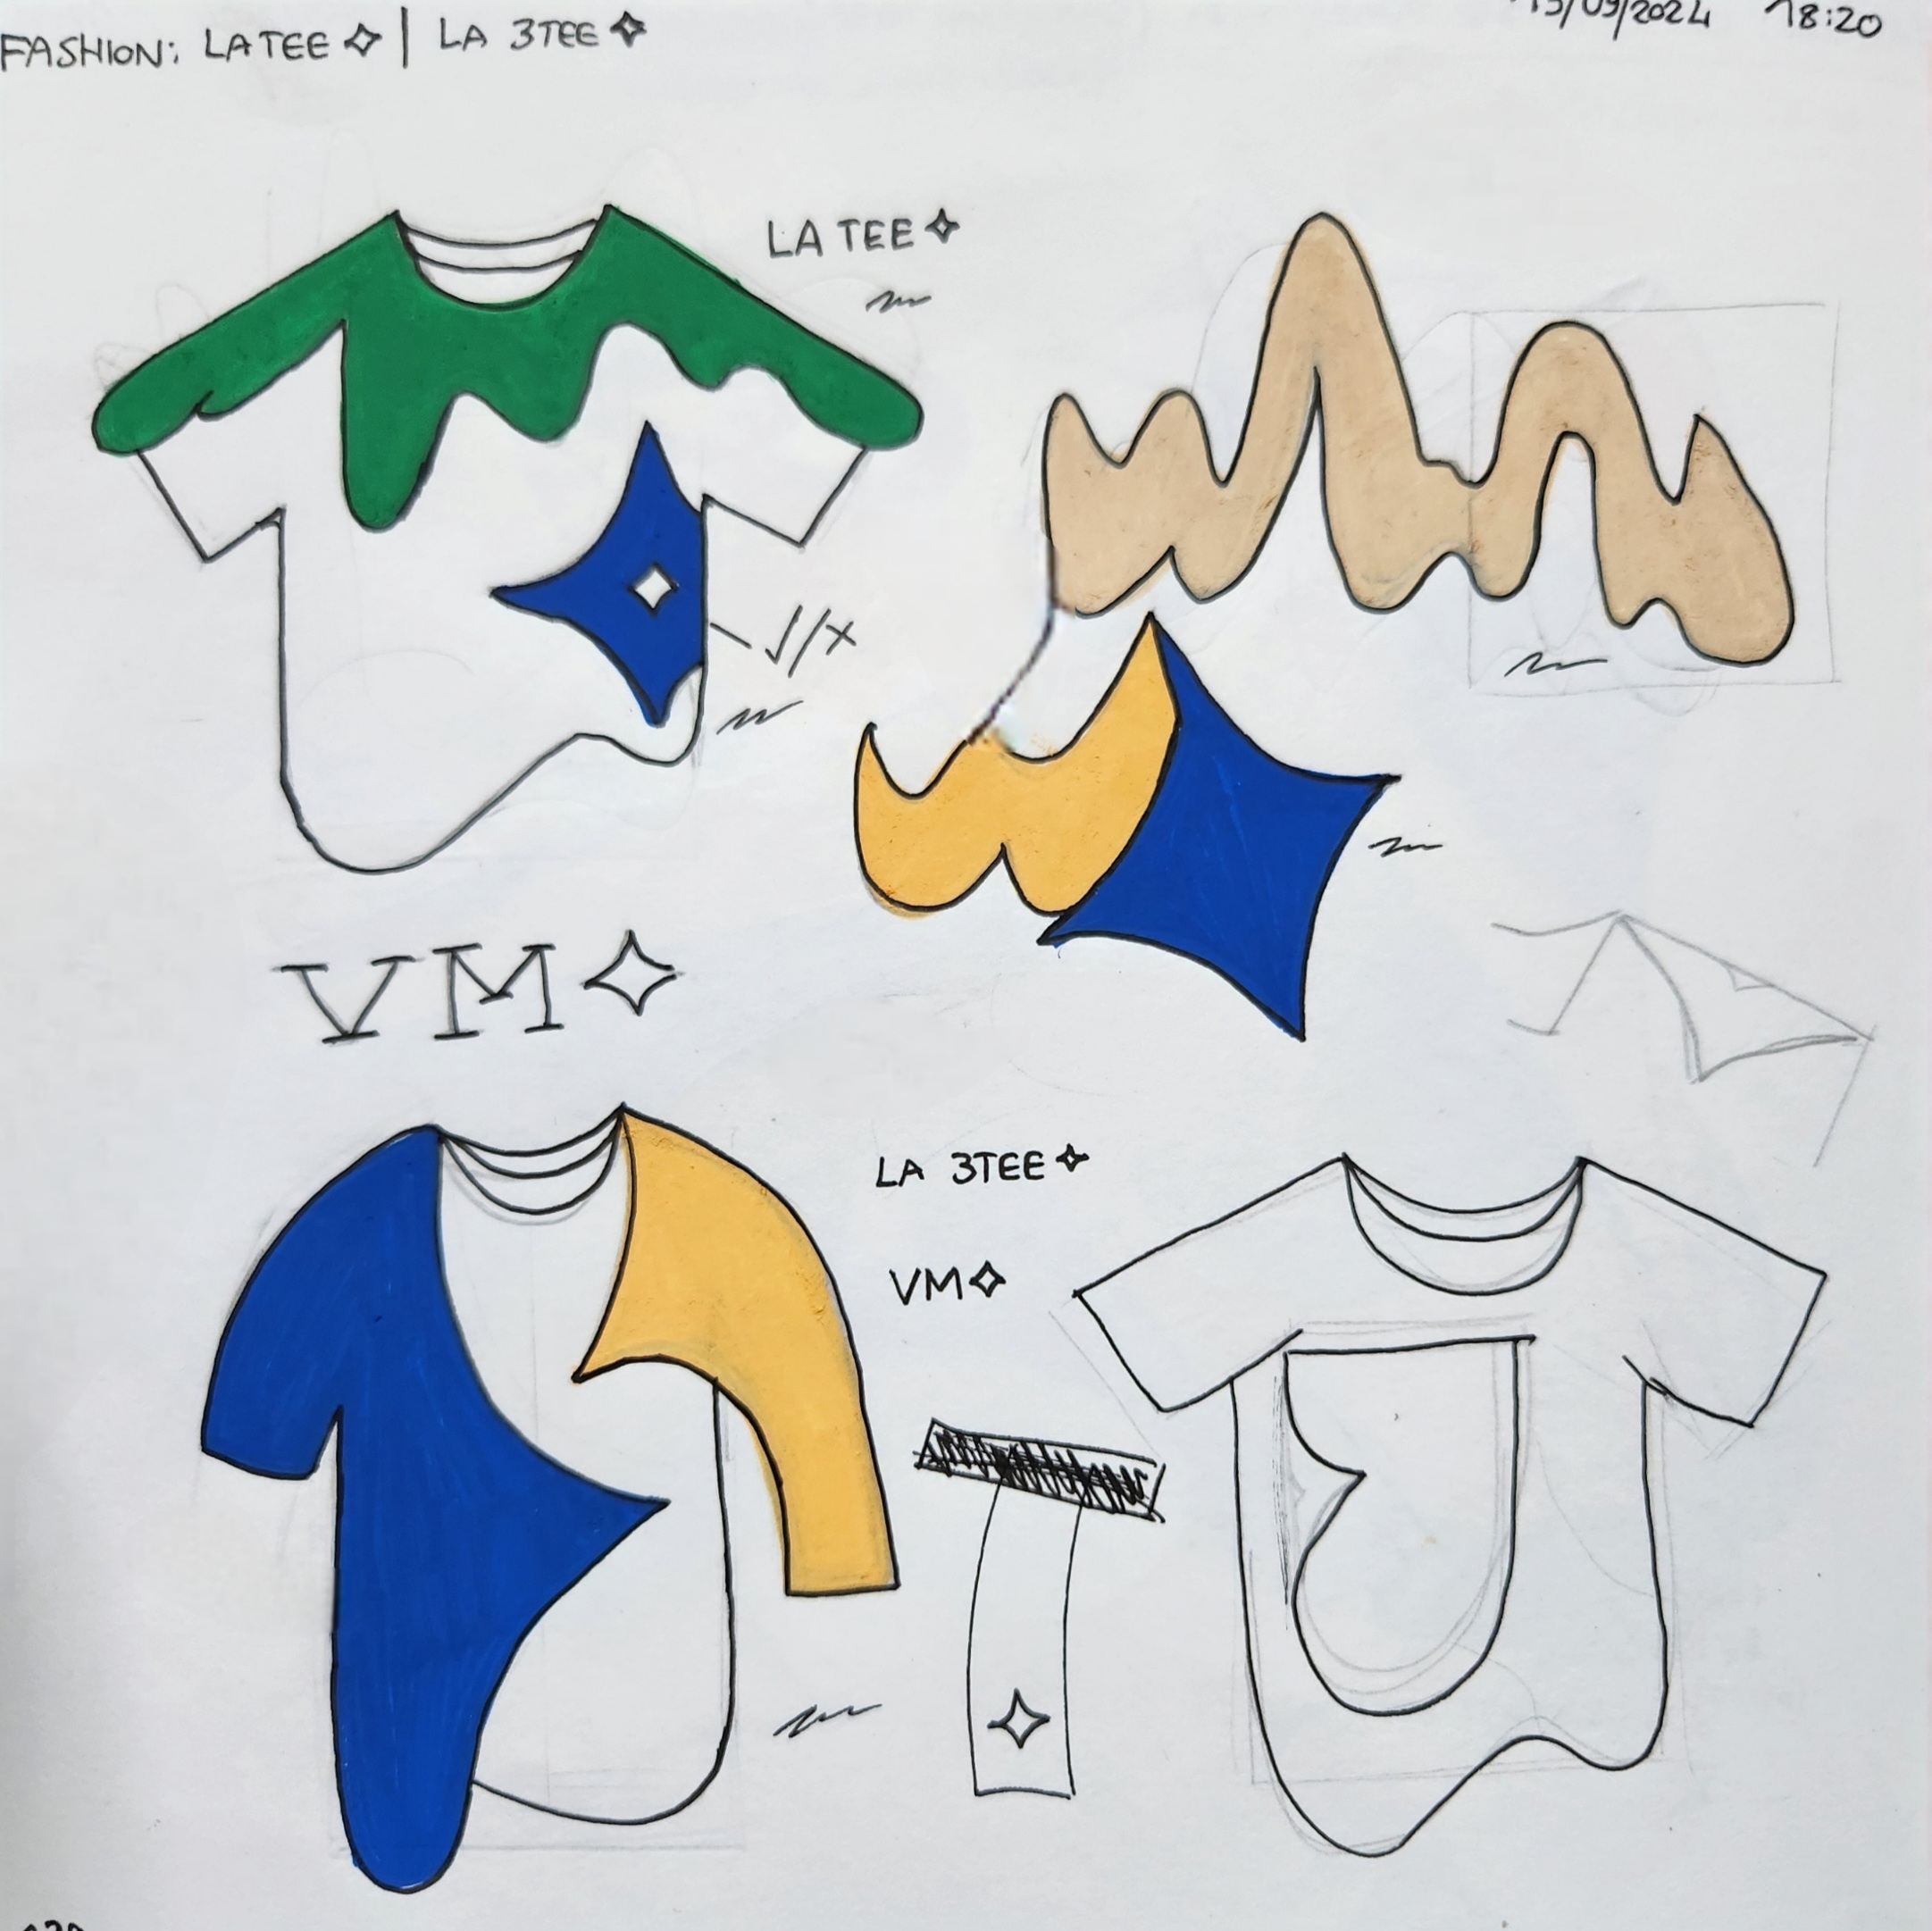 FASHION: LA TEE✧ | LA 3TEE✦
13/09/2024 18:20
LA TEE✧
√/×
VM✧
LA 3TEE✧
VM✧